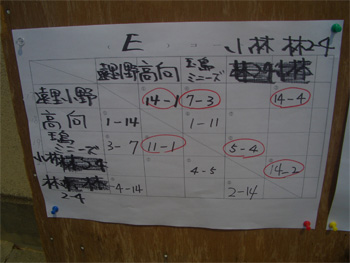 E 小林 林2-4
遠里小野 高向 玉島ミニーズ
遠里小野 14-1 7-3 14-4
高向 1-14 1-11
玉島ミニーズ 3-7 11-1 5-4
小林 4-5 14-2
林2-4 4-14 2-14